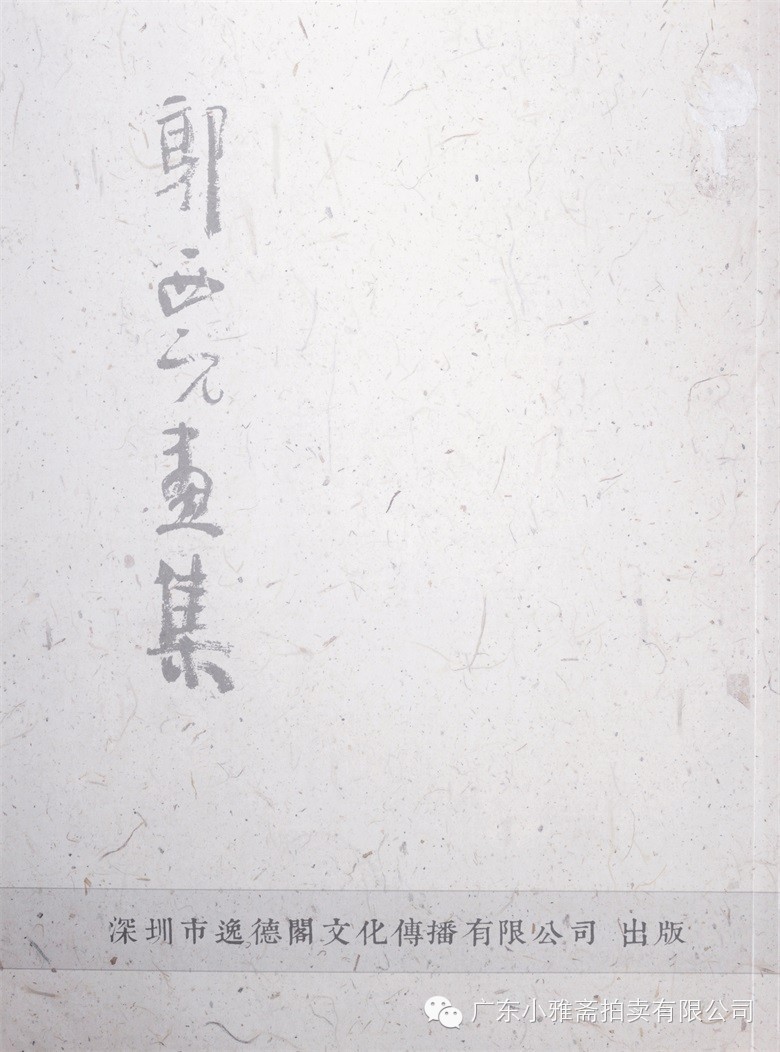 郭西元畫集
深圳市逸德閣文化傳播有限公司 出版
广东小雅斋拍卖有限公司